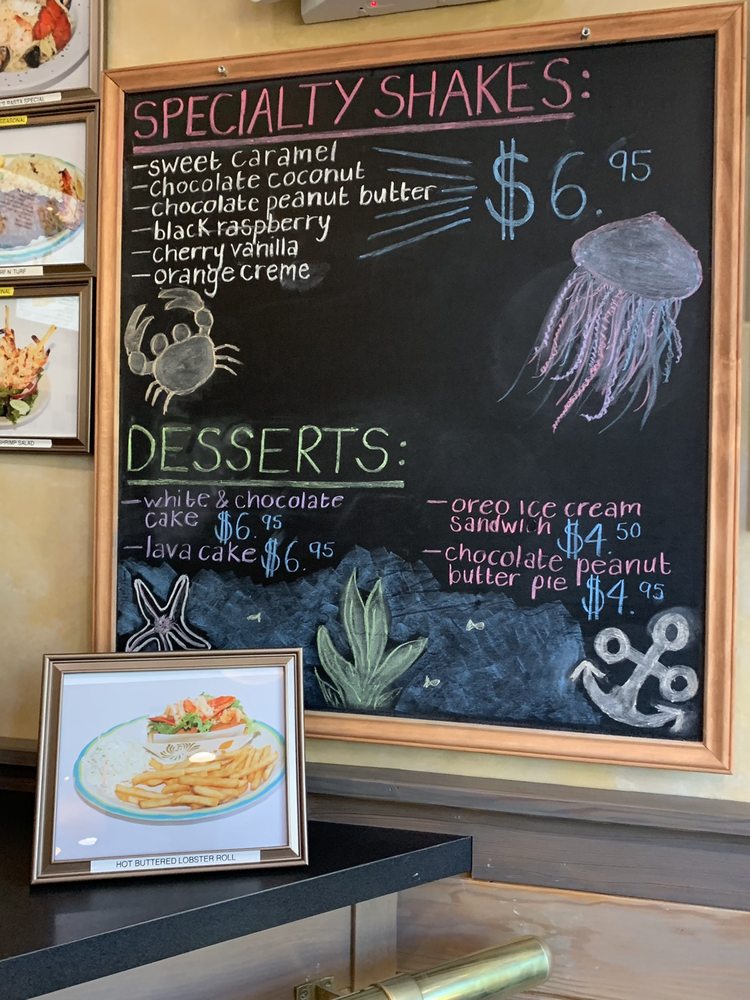 SPECIALTY SHAKES:
-sweet caramel
-chocolate coconut
-chocolate peanut butter
-black raspberry
-cherry vanilla
-orange creme
$6.95
DESSERTS:
-white & chocolate
cake $6.95
-lava cake $6.95
-oreo ice cream
sandwich $4.50
-chocolate peanut
butter pie $4.95
PASTA SPECIAL
SEASONAL
N TURF
SHRIMP SALAD
HOT BUTTERED LOBSTER ROLL